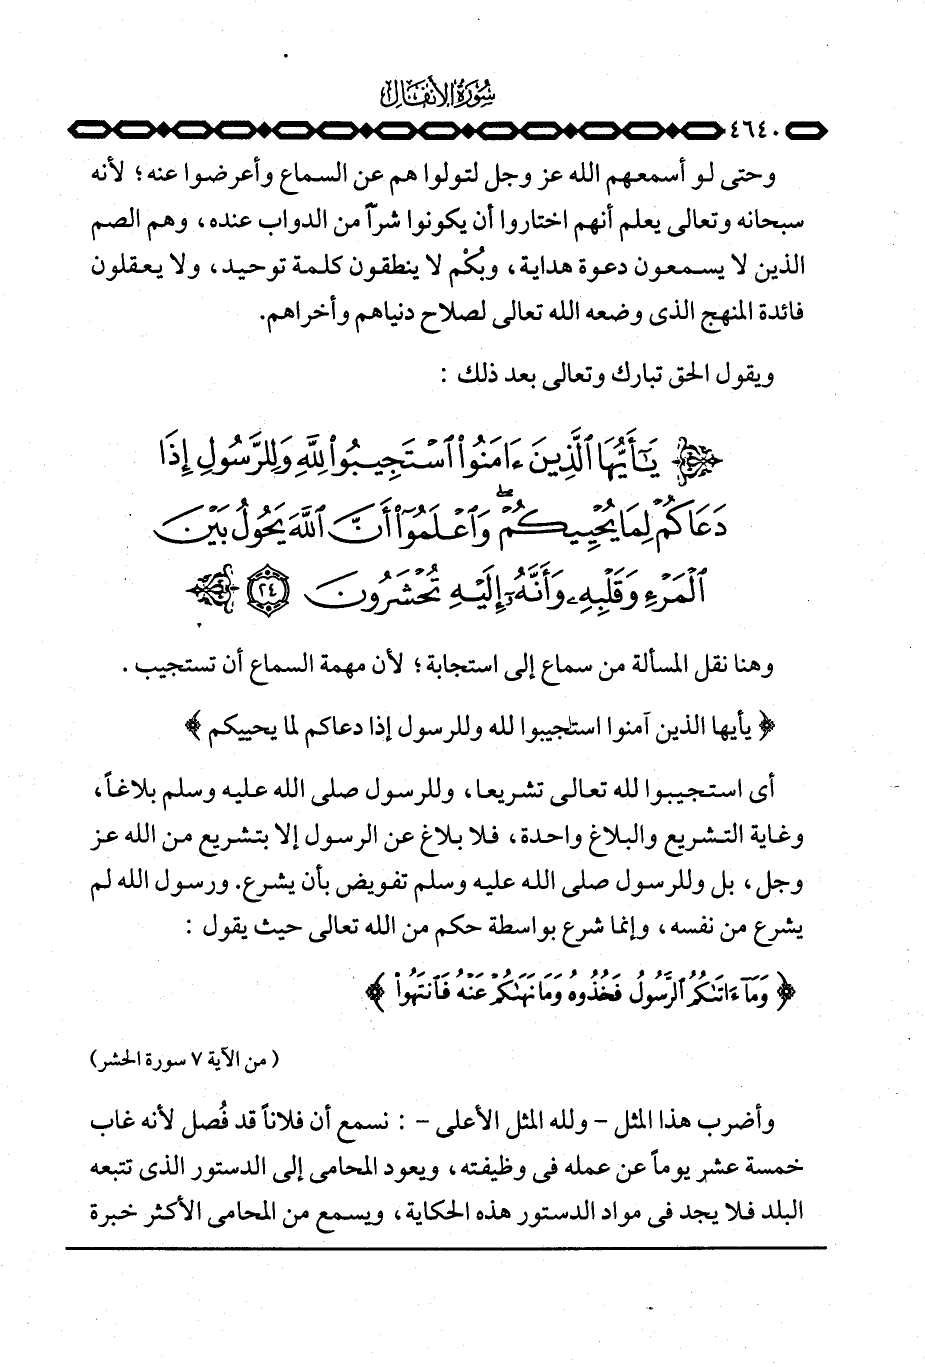 سُورَةُ الأَنفَالِ
٤٦٤٠
وحتى لو أسمعهم الله عز وجل لتولوا هم عن السماع وأعرضوا عنه؛ لأنه
سبحانه وتعالى يعلم أنهم اختاروا أن يكونوا شراً من الدواب عنده، وهم الصم
الذين لا يسمعون دعوة هداية، وبكُم لا ينطقون كلمة توحيد، ولا يعقلون
فائدة المنهج الذى وضعه الله تعالى لصلاح دنياهم وأخراهم.
ويقول الحق تبارك وتعالى بعد ذلك :
يَٰٓأَيُّهَا ٱلَّذِينَ ءَامَنُوا۟ ٱسْتَجِيبُوا۟ لِلَّهِ وَلِلرَّسُولِ إِذَا
دَعَاكُمْ لِمَا يُحْيِيكُمْ ۖ وَٱعْلَمُوٓا۟ أَنَّ ٱللَّهَ يَحُولُ بَيْنَ
ٱلْمَرْءِ وَقَلْبِهِۦ وَأَنَّهُۥٓ إِلَيْهِ تُحْشَرُونَ ٢٤
وهنا نقل المسألة من سماع إلى استجابة؛ لأن مهمة السماع أن تستجيب .
﴿ يأيها الذين آمنوا استجيبوا لله وللرسول إذا دعاكم لما يحييكم ﴾
أى استجيبوا لله تعالى تشريعا، وللرسول صلى الله عليه وسلم بلاغاً،
وغاية التشريع والبلاغ واحدة، فلا بلاغ عن الرسول إلا بتشريع من الله عز
وجل، بل وللرسول صلى الله عليه وسلم تفويض بأن يشرع. ورسول الله لم
يشرع من نفسه، وإنما شرع بواسطة حكم من الله تعالى حيث يقول :
﴿ وَمَآ ءَاتَىٰكُمُ ٱلرَّسُولُ فَخُذُوهُ وَمَا نَهَىٰكُمْ عَنْهُ فَٱنتَهُوا۟ ﴾
( من الآية ٧ سورة الحشر)
وأضرب هذا المثل – ولله المثل الأعلى – : نسمع أن فلاناً قد فُصل لأنه غاب
خمسة عشر يوماً عن عمله فى وظيفته، ويعود المحامى إلى الدستور الذى تتبعه
البلد فلا يجد فى مواد الدستور هذه الحكاية، ويسمع من المحامى الأكثر خبرة